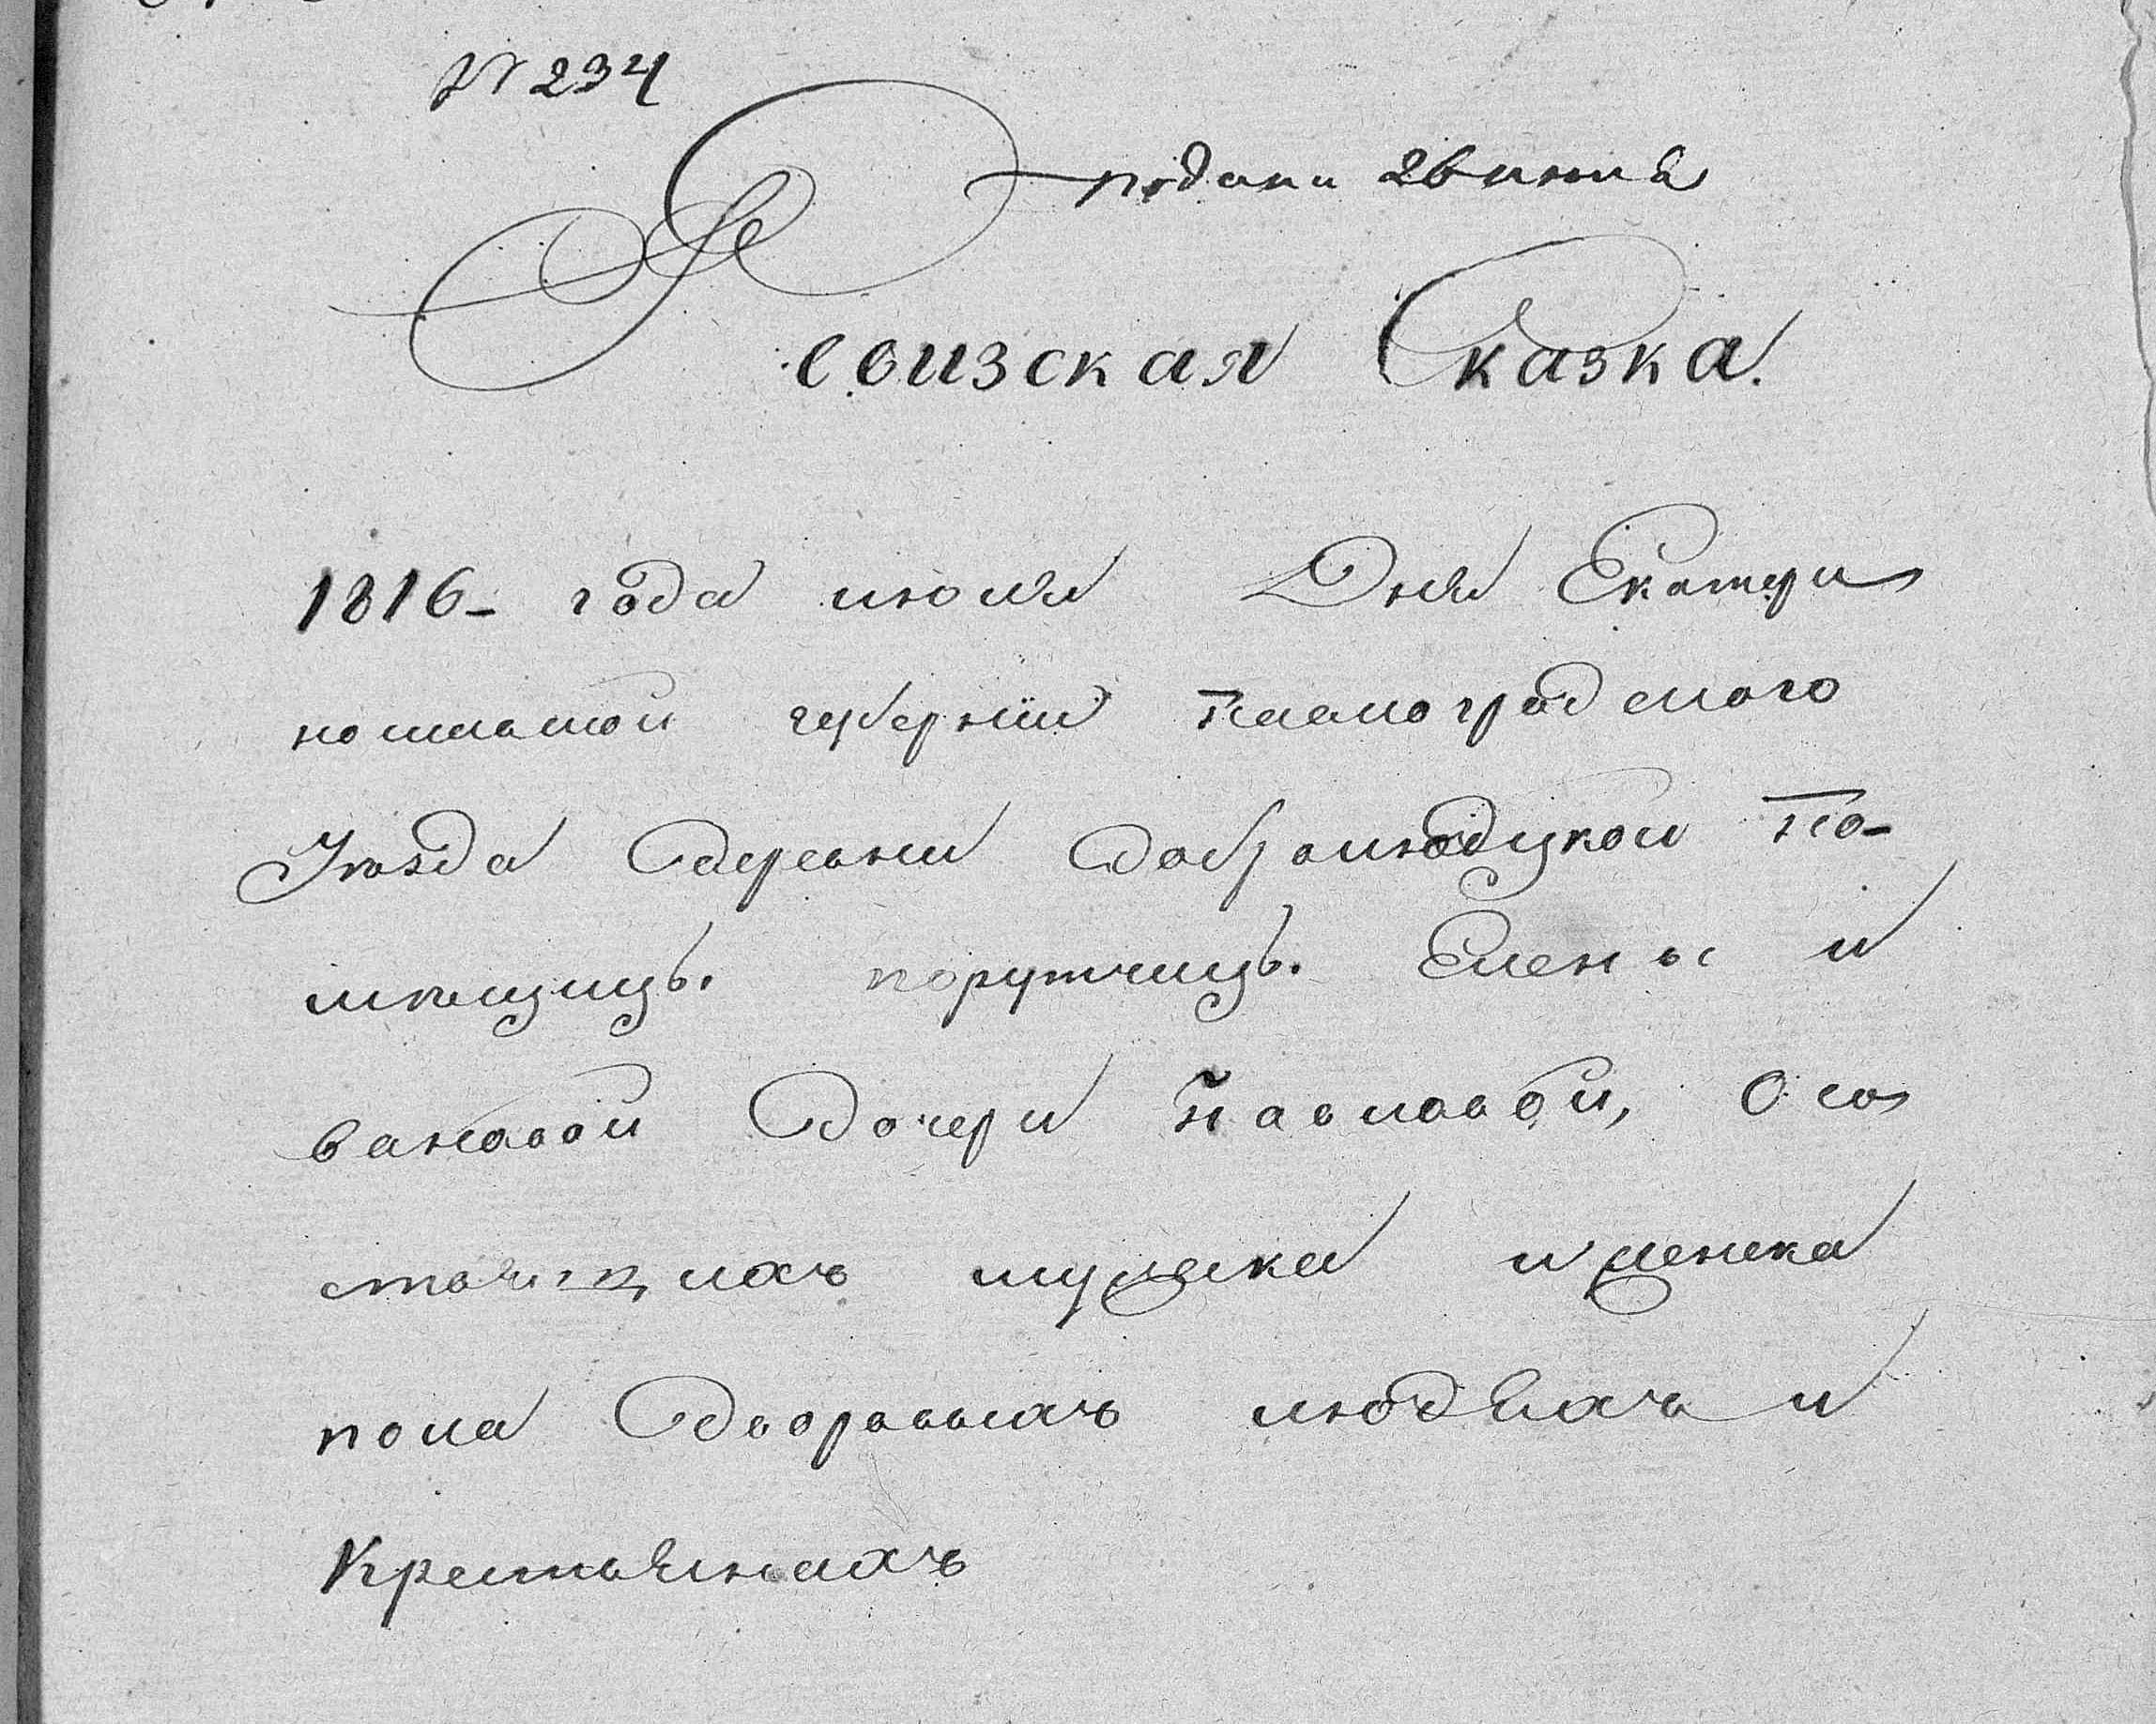 № 234
подана 26 июня
Ревизская Сказка.
1816- года июля Дня Екатери
нославской губернїи Павлоградскаго
Уѣзда деревни добролюдцкой по-
мѣщицѣ. порутчицѣ. Елены и
вановой дочери Павловой, О со
стоящихъ мужска и женска
пола дворовыхъ людяхъ и
Крестьянахъ